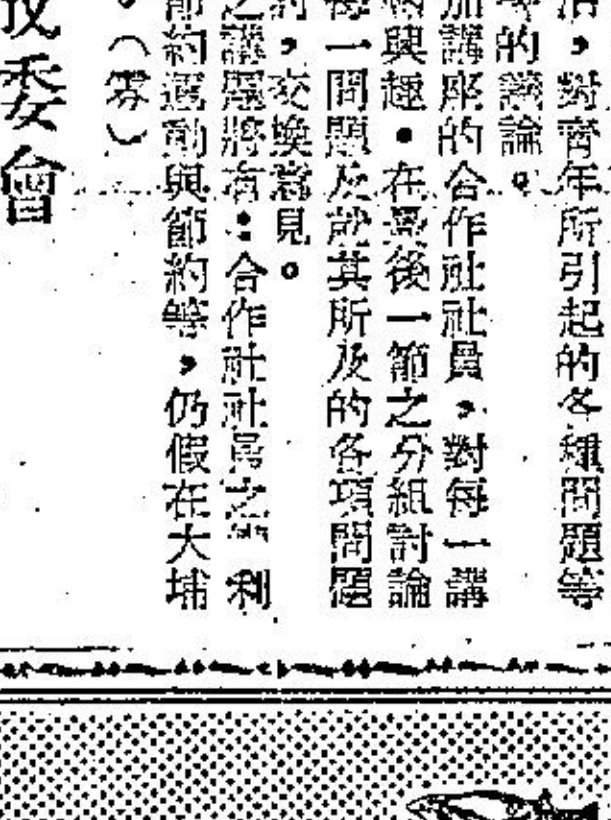 ，對青年所引起的各種問題等
的議論。
加講座的合作社社員，對每一講
興趣。在最後一節之分組討論
每一問題及就其所及的各項問題
，交換意見。
之講題將有：合作社社員之利
節約運動與節約等，仍假在大埔
。（雰）
委會